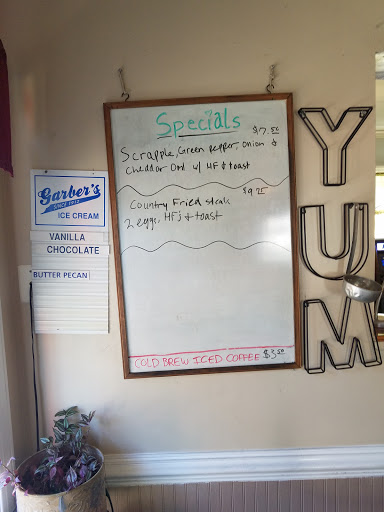 Specials
$7.50
Scrapple, Green pepper, onion &
Cheddar Oml w/ HF & toast
$9.25
Country Fried steak
2 eggs, HFj & toast
COLD BREW ICED COFFEE $3.50
Garber's
SINCE 1912
ICE CREAM
VANILLA
CHOCOLATE
BUTTER PECAN
YUM